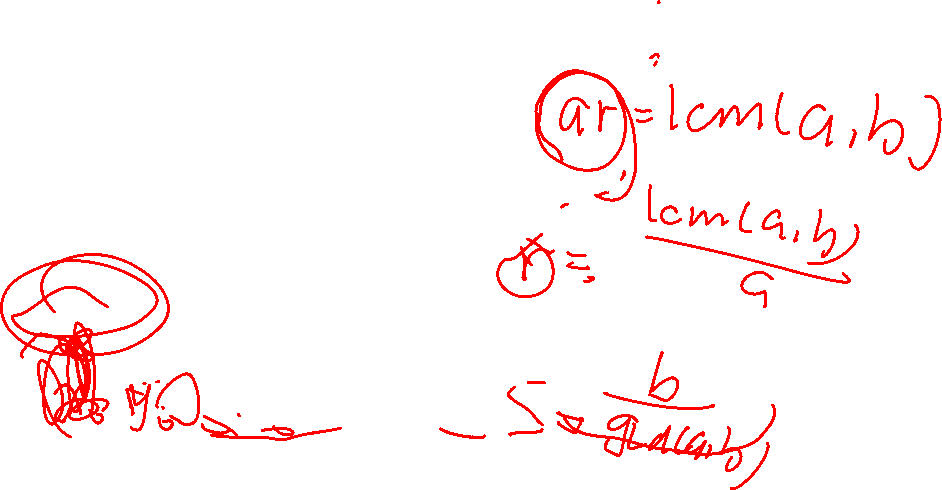 ar = lcm(a,b)
r = lcm(a,b) / a
b / gcd(a,b)